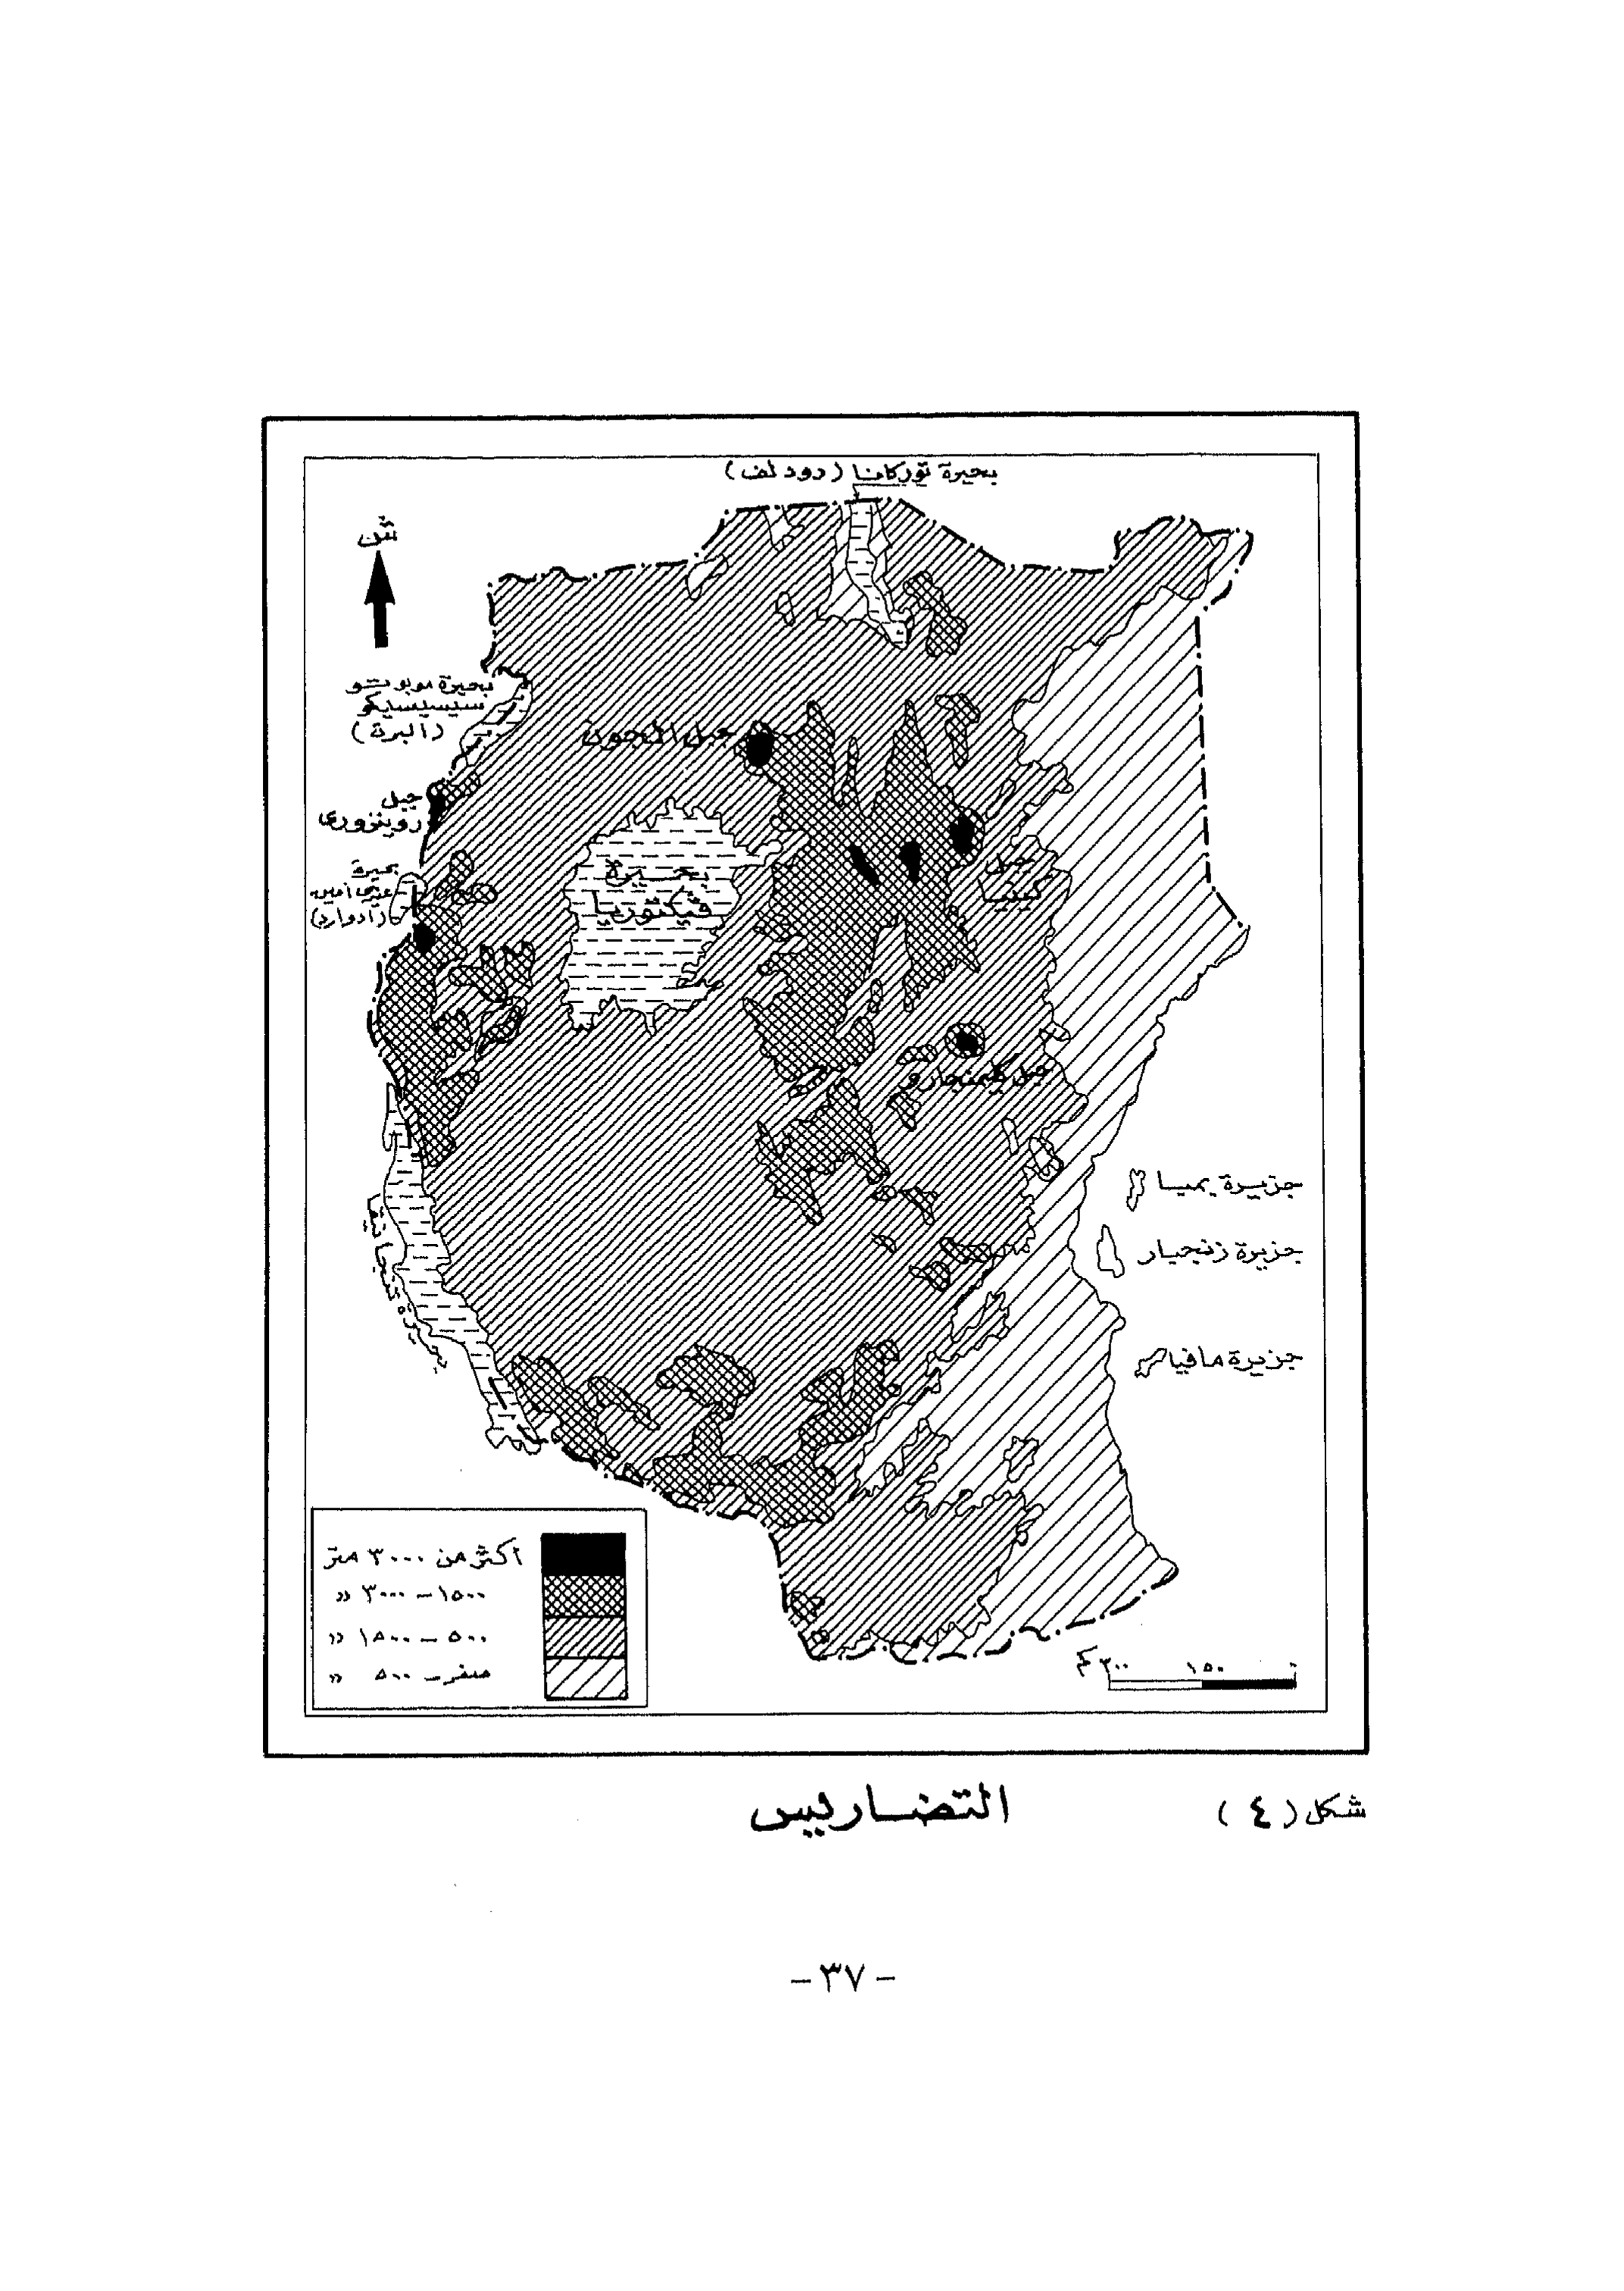 بحيرة توركانا (رودلف)
ش
بحيرة موبوتو
سيسيسيكو
(البرت)
جبل الجون
جبل
روينزورى
بحيرة
عيدى أمين
(ادوارد)
بحيرة
ڤيكتوريا
جبل
كينيا
جبل كلمنجارو
جزيرة بمبا
جزيرة زنجبار
جزيرة مافيا
بحيرة تنجانيقا
أكثر من ٣٠٠٠ متر
١٥٠٠ - ٣٠٠٠ »
٥٠٠ - ١٥٠٠ »
صفر - ٥٠٠ »
٠ ١٥٠ ٣٠٠ كم
شكل (٤) التضاريس
- ٣٧ -